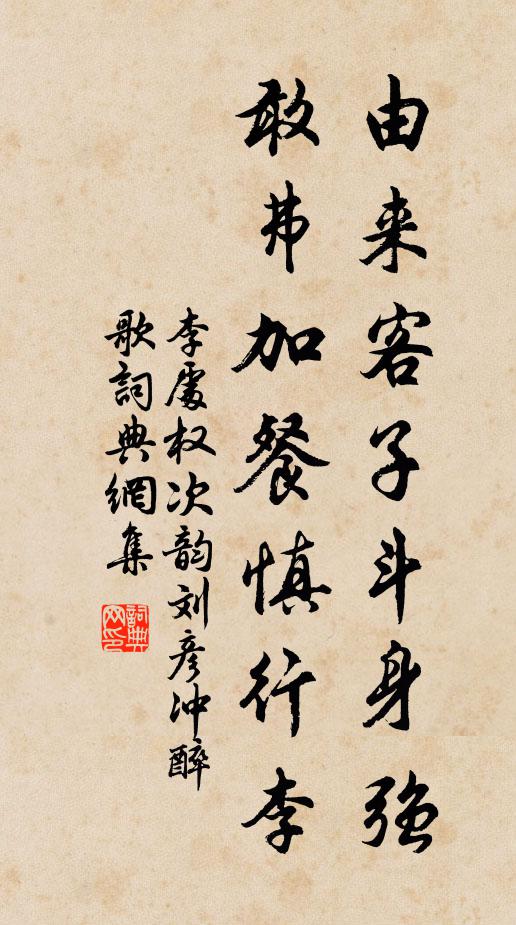 由来客子斗身强
敢弗加餐慎行李
李處权次韵刘彦冲醉
歌詞典網集
詞典網印